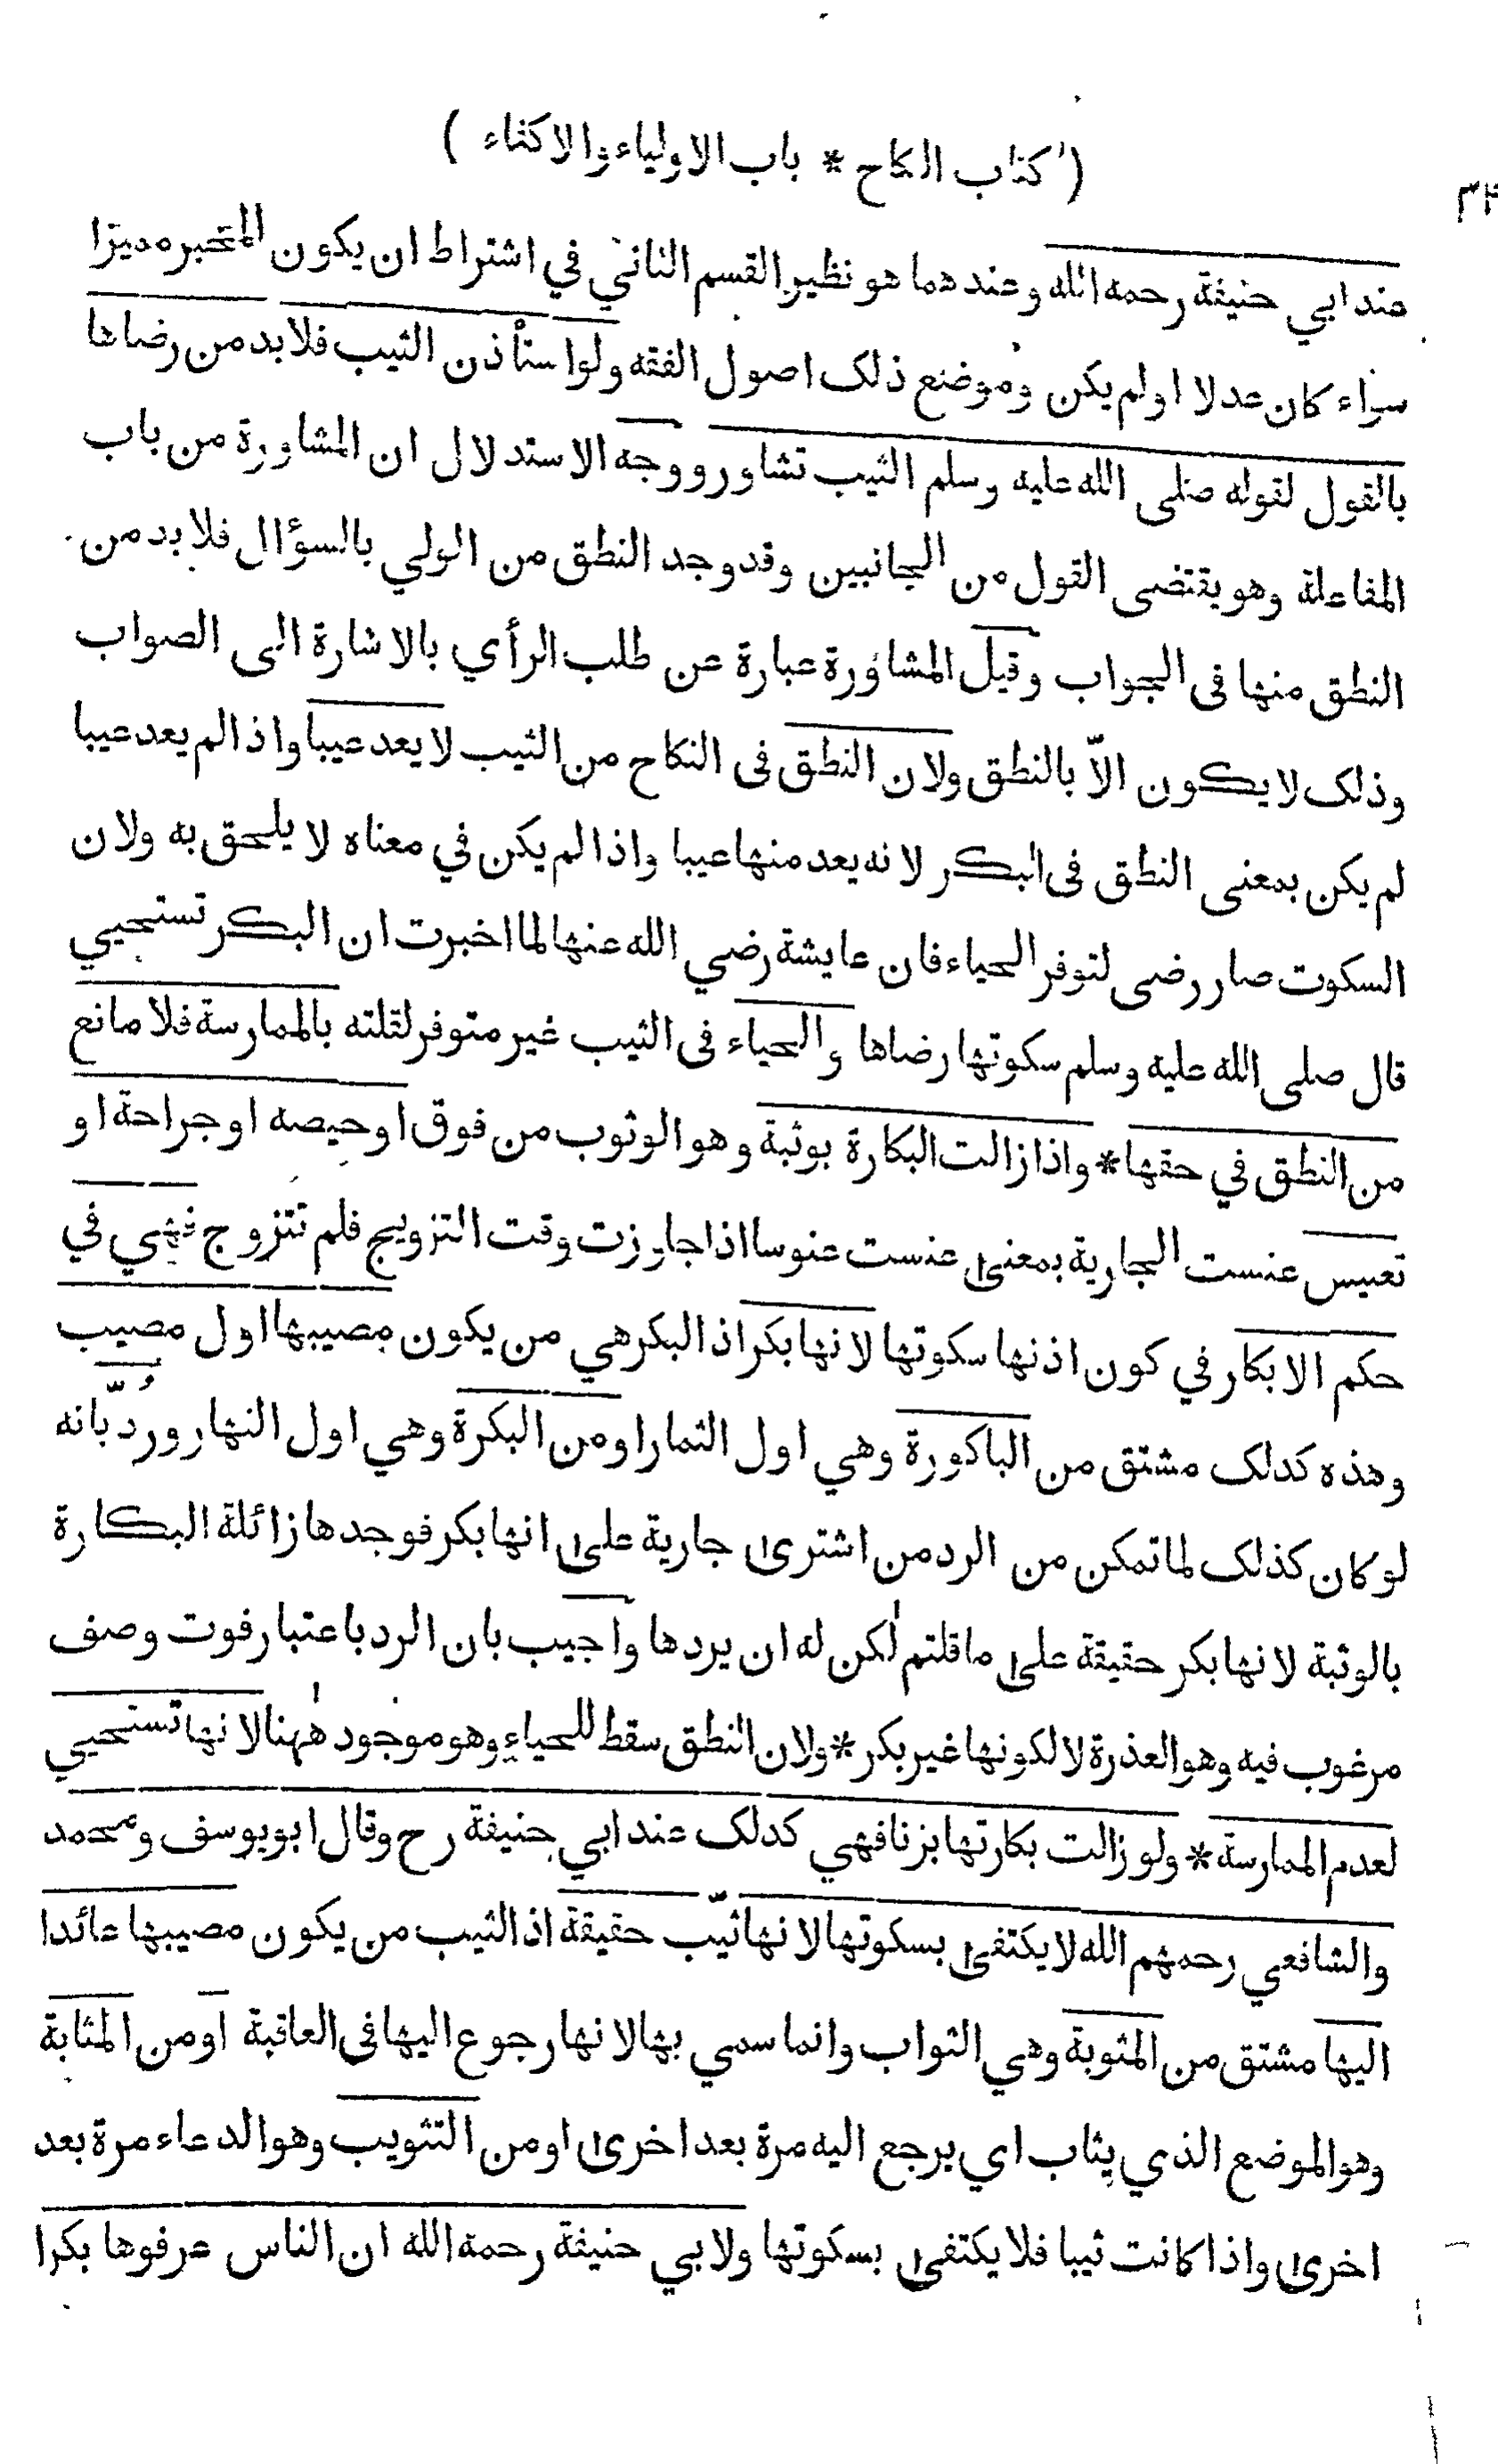 ( كتاب النكاح * باب الاولياء والاكفاء )
عند ابي حنيفة رحمه الله وعندهما هو نظير القسم الثاني في اشتراط ان يكون المخبر مميزا
سواء كان عدلا او لم يكن وموضع ذلك اصول الفقه ولو استأذن الثيب فلا بد من رضاها
بالقول لقوله صلى الله عليه وسلم الثيب تشاور ووجه الاستدلال ان المشاورة من باب
المفاعلة وهو يقتضى القول من الجانبين وقد وجد النطق من الولي بالسؤال فلا بد من
النطق منها فى الجواب وقيل المشاورة عبارة عن طلب الرأي بالاشارة الى الصواب
وذلك لا يكون الاّ بالنطق ولان النطق فى النكاح من الثيب لا يعد عيبا واذا لم يعد عيبا
لم يكن بمعنى النطق فى البكر لانه يعد منها عيبا واذا لم يكن في معناه لا يلحق به ولان
السكوت صار رضى لتوفر الحياء فان عايشة رضي الله عنها لما اخبرت ان البكر تستحيي
قال صلى الله عليه وسلم سكوتها رضاها والحياء فى الثيب غير متوفر لقلته بالممارسة فلا مانع
من النطق في حقها * واذا زالت البكارة بوثبة وهو الوثوب من فوق او حيضه او جراحة او
تعنيس عنست الجارية بمعنى عنست عنوسا اذا جاوزت وقت التزويج فلم تتزوج فهي في
حكم الابكار في كون اذنها سكوتها لانها بكر اذ البكر هي من يكون مصيبها اول مصيب
وهذه كذلك مشتق من الباكورة وهي اول الثمار او من البكرة وهي اول النهار ورُدّ بانه
لو كان كذلك لما تمكن من الرد من اشترى جارية على انها بكر فوجدها زائلة البكارة
بالوثبة لانها بكر حقيقة على ما قلتم لكن له ان يردها واجيب بان الرد باعتبار فوت وصف
مرغوب فيه وهو العذرة لا لكونها غير بكر * ولان النطق سقط للحياء وهو موجود ههنا لانها تستحيي
لعدم الممارسة * ولو زالت بكارتها بزنا فهي كذلك عند ابي حنيفة رح وقال ابو يوسف ومحمد
والشافعي رحمهم الله لا يكتفى بسكوتها لانها ثيّب حقيقة اذ الثيب من يكون مصيبها عائدا
اليها مشتق من المثوبة وهي الثواب وانما سمي بها لانها رجوع اليها فى العاقبة او من المثابة
وهو الموضع الذي يثاب اي يرجع اليه مرة بعد اخرى او من التثويب وهو الدعاء مرة بعد
اخرى واذا كانت ثيبا فلا يكتفى بسكوتها ولابي حنيفة رحمه الله ان الناس عرفوها بكرا